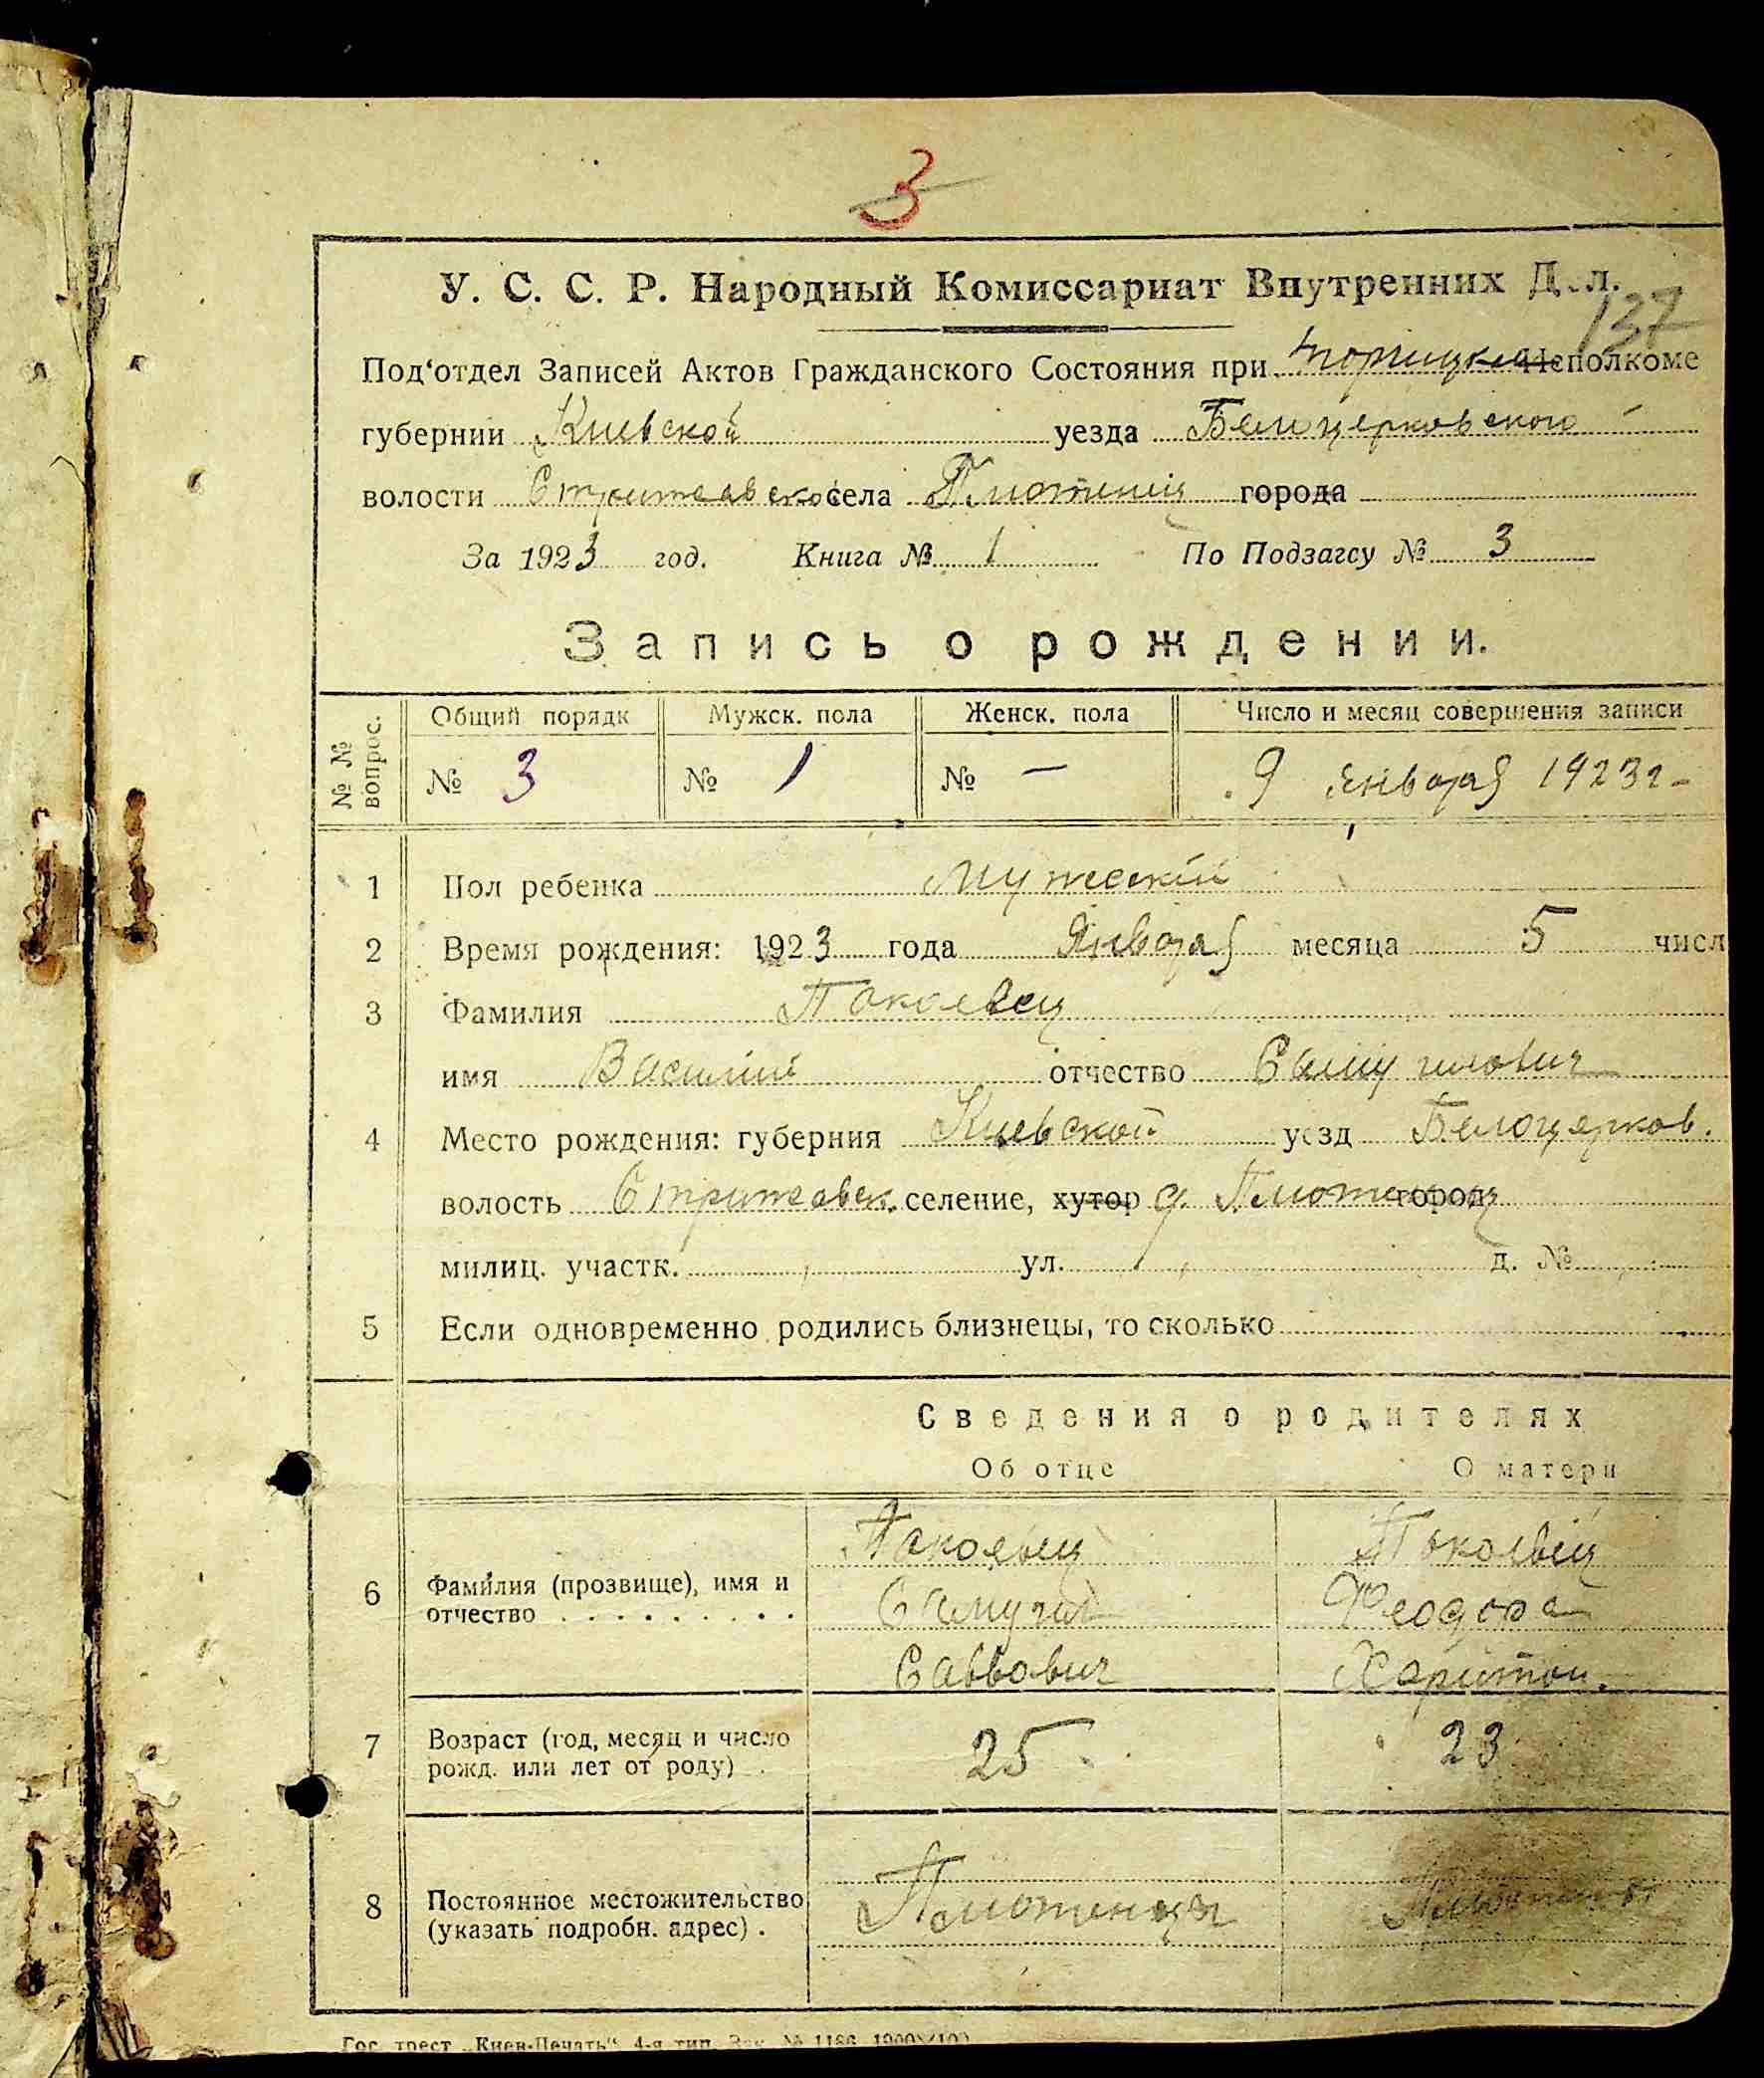 3
У. С. С. Р. Народный Комиссариат Внутренних Дел.
137
Под‘отдел Записей Актов Гражданского Состояния при Исполкоме
губернии Киевской уезда Белицерковского
волости села города
За 1923 год. Книга № 1 По Подзагсу № 3
Запись о рождении.
№ № вопрос. Общий порядк Мужск. пола Женск. пола Число и месяц совершения записи
№ 3 № 1 № — 9 января 1923 г.
1 Пол ребенка Мужескій
2 Время рождения: 1923 года Января месяца 5 числ
3 Фамилия
имя Василий отчество Самуилович
4 Место рождения: губерния Киевской уезд Белоцерков.
волость Стритовск. селение, хутор д. город
милиц. участк. ул. д. №
5 Если одновременно родились близнецы, то сколько
Сведения о родителях
Об отце О матери
6 Фамилия (прозвище), имя и
отчество
Самуил Феодора
Саввович Харитон.
7 Возраст (год, месяц и число
рожд. или лет от роду) . 25 23
8 Постоянное местожительство
(указать подробн. адрес) .
Гос. трест „Киев-Печать“ 4-я тип. Зак. № 1186